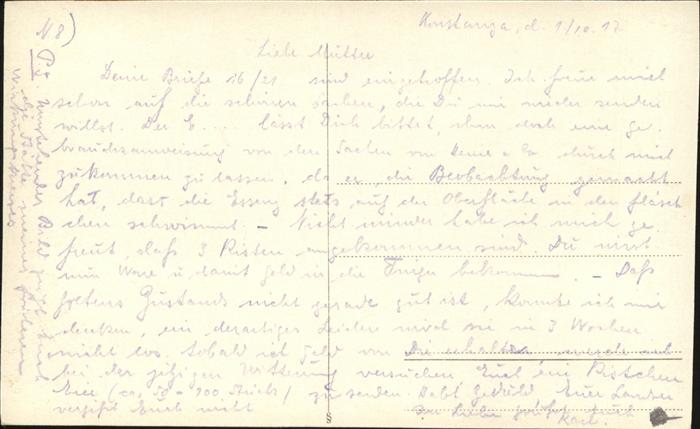 N 8)
Konstanza, d. 1/10.17.
Liebe Mutter
Deine Briefe 16/21 sind eingetroffen. Ich freue mich
schon auf die schönen Sachen, die Du mir wieder senden
willst. Der E.... lässt Dich bittet, ihm doch eine Ge-
brauchsanweisung von den Sachen von durch mich
zukommen zu lassen, da er die Beobachtung gemacht
hat, dass die Essenz stets auf der Oberfläche in den Fläsch
chen schwimmt - Nicht minder habe ich mich ge-
freut, daß 3 Kisten angekommen sind. Du wirst
nun Ware u. damit Geld in die Finger bekommen - Daß
Zustand nicht gerade gut ist, konnte ich mir
denken, ein derartiges Leiden wird sie in 3 Wochen
nicht los. Sobald ich Geld von Dir erhalten werde ich
bei der jetzigen Witterung versuchen Euch ein Kistchen
Eier (ca. 50 - 100 Stück) zu senden. Habt Geduld Euer
vergißt Euch nicht
Karl.
Umstehendes Bild zeigt Euch
die meines